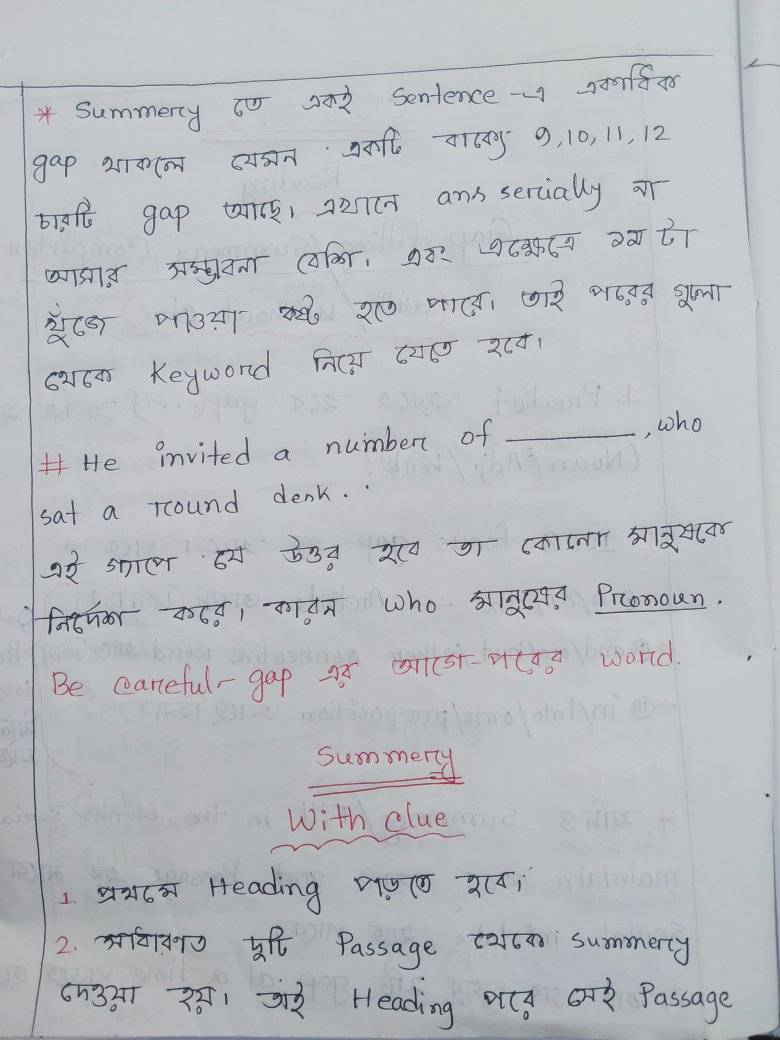 * Summery তে একই Sentence -এ একাধিক
gap থাকলে যেমন একটি বাক্যে 9,10,11,12
চারটি gap আছে। এখানে ans serially না
আসার সম্ভাবনা বেশি। এবং এক্ষেত্রে ১ম টা
খুঁজে পাওয়া কষ্ট হতে পারে। তাই পরের গুলো
থেকে Keyword নিয়ে যেতে হবে।
# He invited a number of ______, who
sat a round desk.
এই গ্যাপে যে উত্তর হবে তা কোনো মানুষকে
নির্দেশ করে। কারন who মানুষের Pronoun.
Be careful- gap এর আগে-পরের word.
Summery
With clue
1. প্রথমে Heading পড়তে হবে।
2. সাধারণত দুটি Passage থেকে summery
দেওয়া হয়। তাই Heading পরে সেই Passage